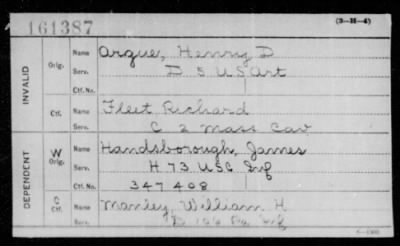 161387
(3-H-4)
INVALID
Orig.
Name Argue, Henry D
Serv. D 5 US Art
Ctf. No.
Ctf.
Name Fleet Richard
Serv. C 2 Mass Cav
DEPENDENT
W Orig.
Name Handsborough, James
Serv. H 73 USC Inf
Ctf. No. 347408
C Ctf.
Name Manley, William H.
Serv. D 106 Pa. Inf